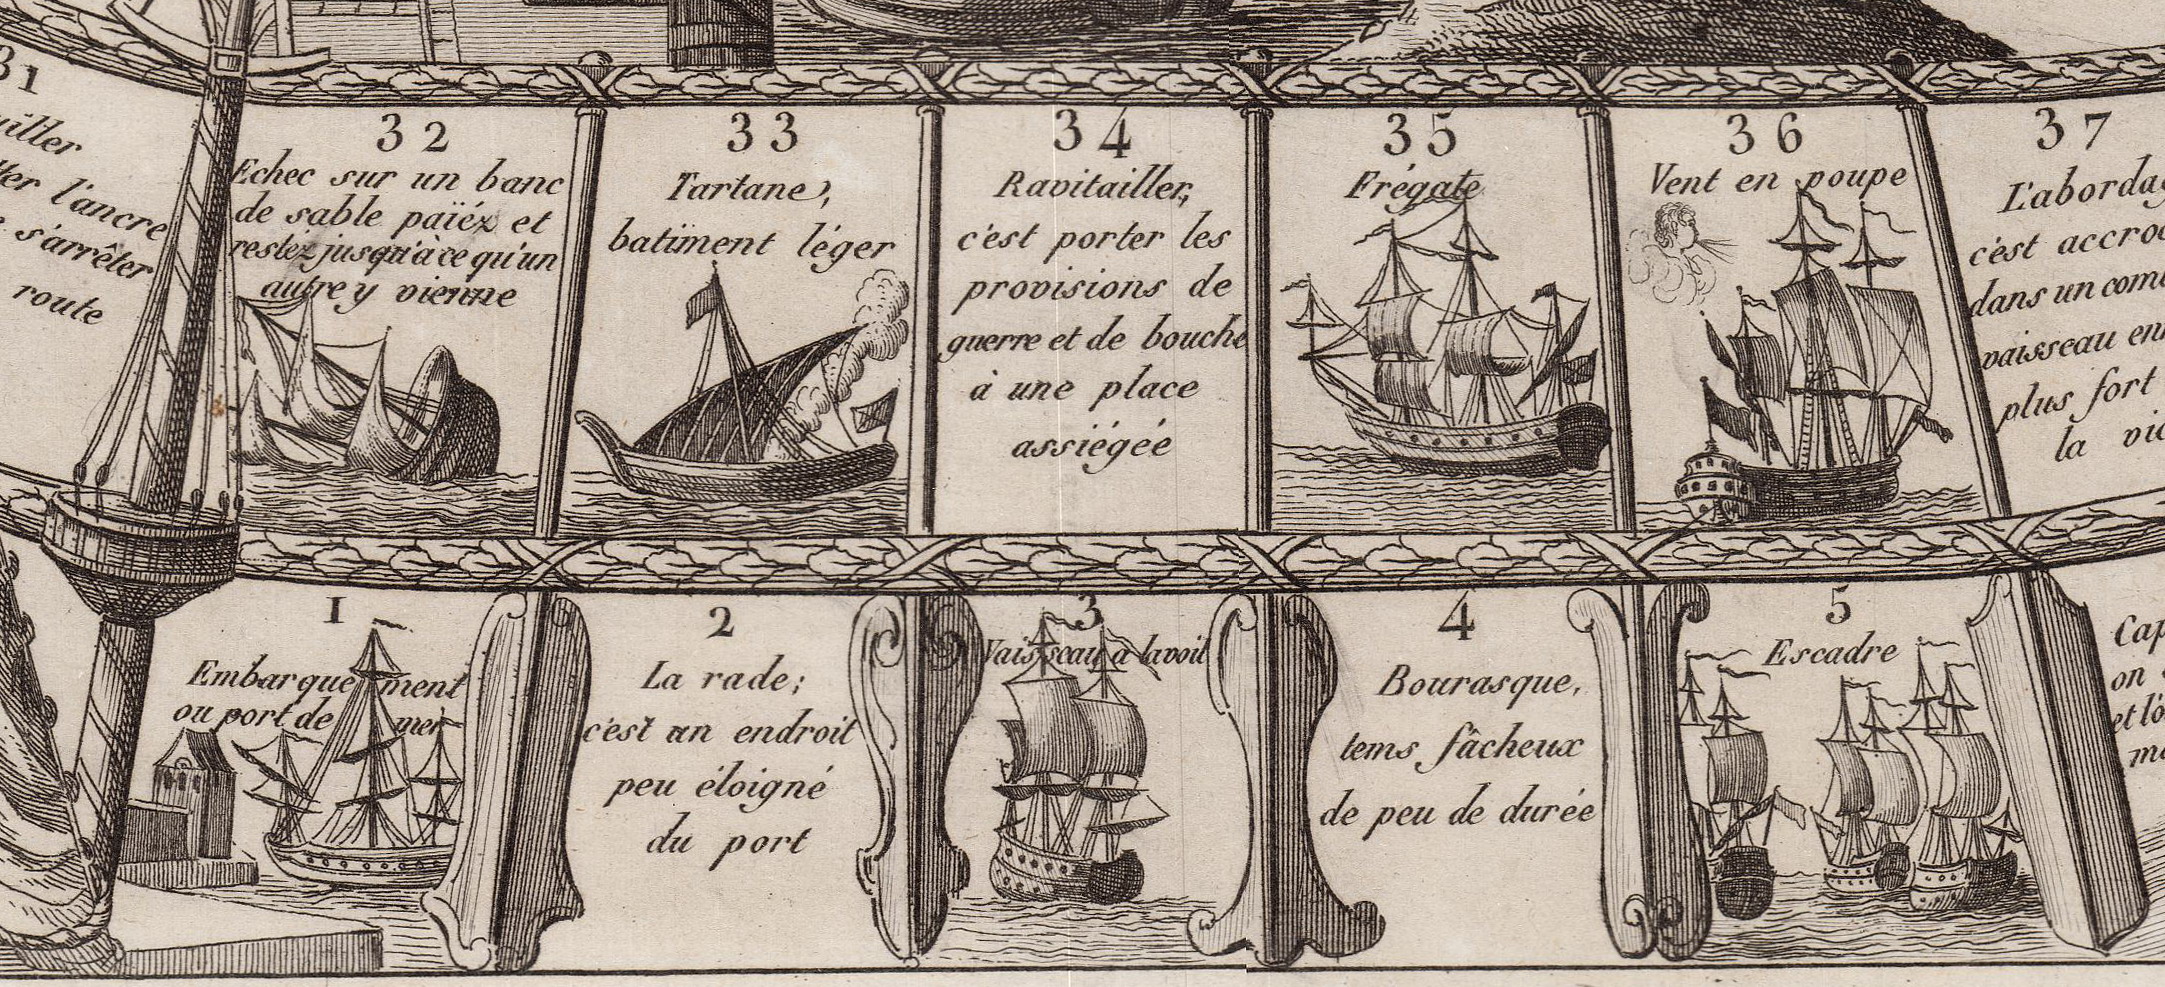 31
l'ancre
s'arrêter
route
32
Echec sur un banc
de sable païéz et
restéz jusqu'à ce qu'un
autre y vienne
33
Tartane,
batiment léger
34
Ravitailler,
c'est porter les
provisions de
guerre et de bouche
à une place
assiégée
35
Frégate
36
Vent en poupe
37
L'aborda
c'est
dans un
vaisseau
plus fort
la
1
Embarquement
ou port de mer
2
La rade;
c'est un endroit
peu éloigné
du port
3
Vaisseau a lavoil
4
Bourasque,
tems fâcheux
de peu de durée
5
Escadre
on
et